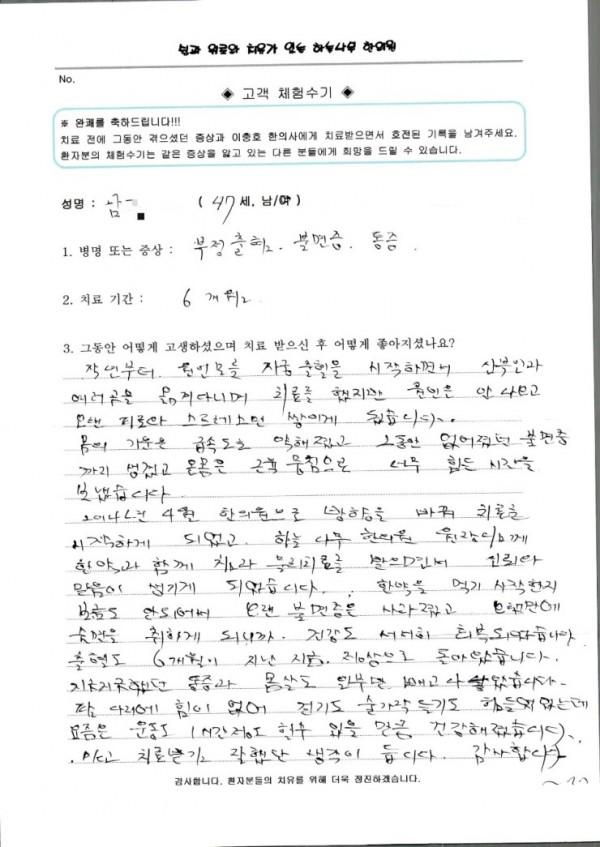 No.
◈ 고객 체험수기 ◈
※ 완쾌를 축하드립니다!!!
치료 전에 그동안 겪으셨던 증상과 이충호 한의사에게 치료받으면서 호전된 기록을 남겨주세요.
환자분의 체험수기는 같은 증상을 앓고 있는 다른 분들에게 희망을 드릴 수 있습니다.
성명 : 남 ( 47 세, 남/여 )
1. 병명 또는 증상 : 부정출혈. 불면증. 통증.
2. 치료 기간 : 6개월
3. 그동안 어떻게 고생하셨으며 치료 받으신 후 어떻게 좋아지셨나요?
작년부터 원인모를 자궁출혈을 시작하면서 산부인과
여러곳을 옮겨다니며 치료를 했지만 원인은 안나오고
오랜 피로와 스트레스만 쌓이게 됬습니다.
몸의 기운은 급속도로 약해졌고 그동안 없어졌던 불면증
까지 생겼고 온몸은 근육뭉침으로 너무 힘든 시간을
보냈습니다.
4월 한의원으로 방향을 바꿔 치료를
시작하게 되었고. 하늘나무한의원 원장님께
한약과 함께 치료과 물리치료를 받으면서 신뢰와
믿음이 생기게 되었습니다. 한약을 먹기 시작한지
안되어서 오랜 불면증은 사라졌고 오랜만에
숙면을 취하게 되니까. 건강도 서서히 회복되었습니다.
출혈도 6개월이 지난 지금. 정상으로 돌아왔습니다.
통증과 몸살도
다리에 힘이 없어 걷기도 숟가락 들기도 힘들었는데
요즘은 운동도 1시간정도 할수 있을 만큼 건강해졌습니다.
치료받기 잘했단 생각이 듭니다. 감사합니다
감사합니다. 환자분들의 치유를 위해 더욱 정진하겠습니다.